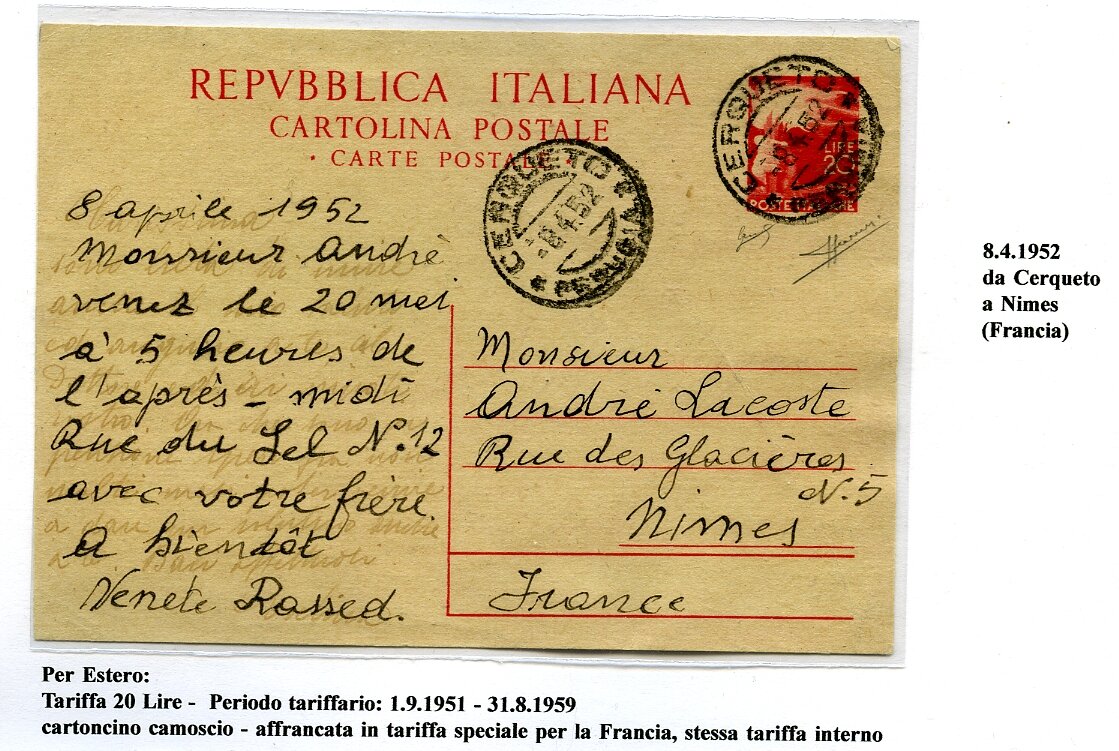 REPVBBLICA ITALIANA
CARTOLINA POSTALE
· CARTE POSTALE ·
CERQUETO * PERUGIA *
-8.4.52
LIRE
20
POSTE ITALIANE
CERQUETO * PERUGIA *
-8.4.52
8 aprile 1952
Monsieur André
venez le 20 mei
à 5 heures de
l'après-midi
Rue du Sel N. 12
avec votre frère.
A bientôt
Venete Rassed.
Monsieur
André Lacoste
Rue des Glacières
N. 5
Nimes
France
8.4.1952
da Cerqueto
a Nimes
(Francia)
Per Estero:
Tariffa 20 Lire - Periodo tariffario: 1.9.1951 - 31.8.1959
cartoncino camoscio - affrancata in tariffa speciale per la Francia, stessa tariffa interno